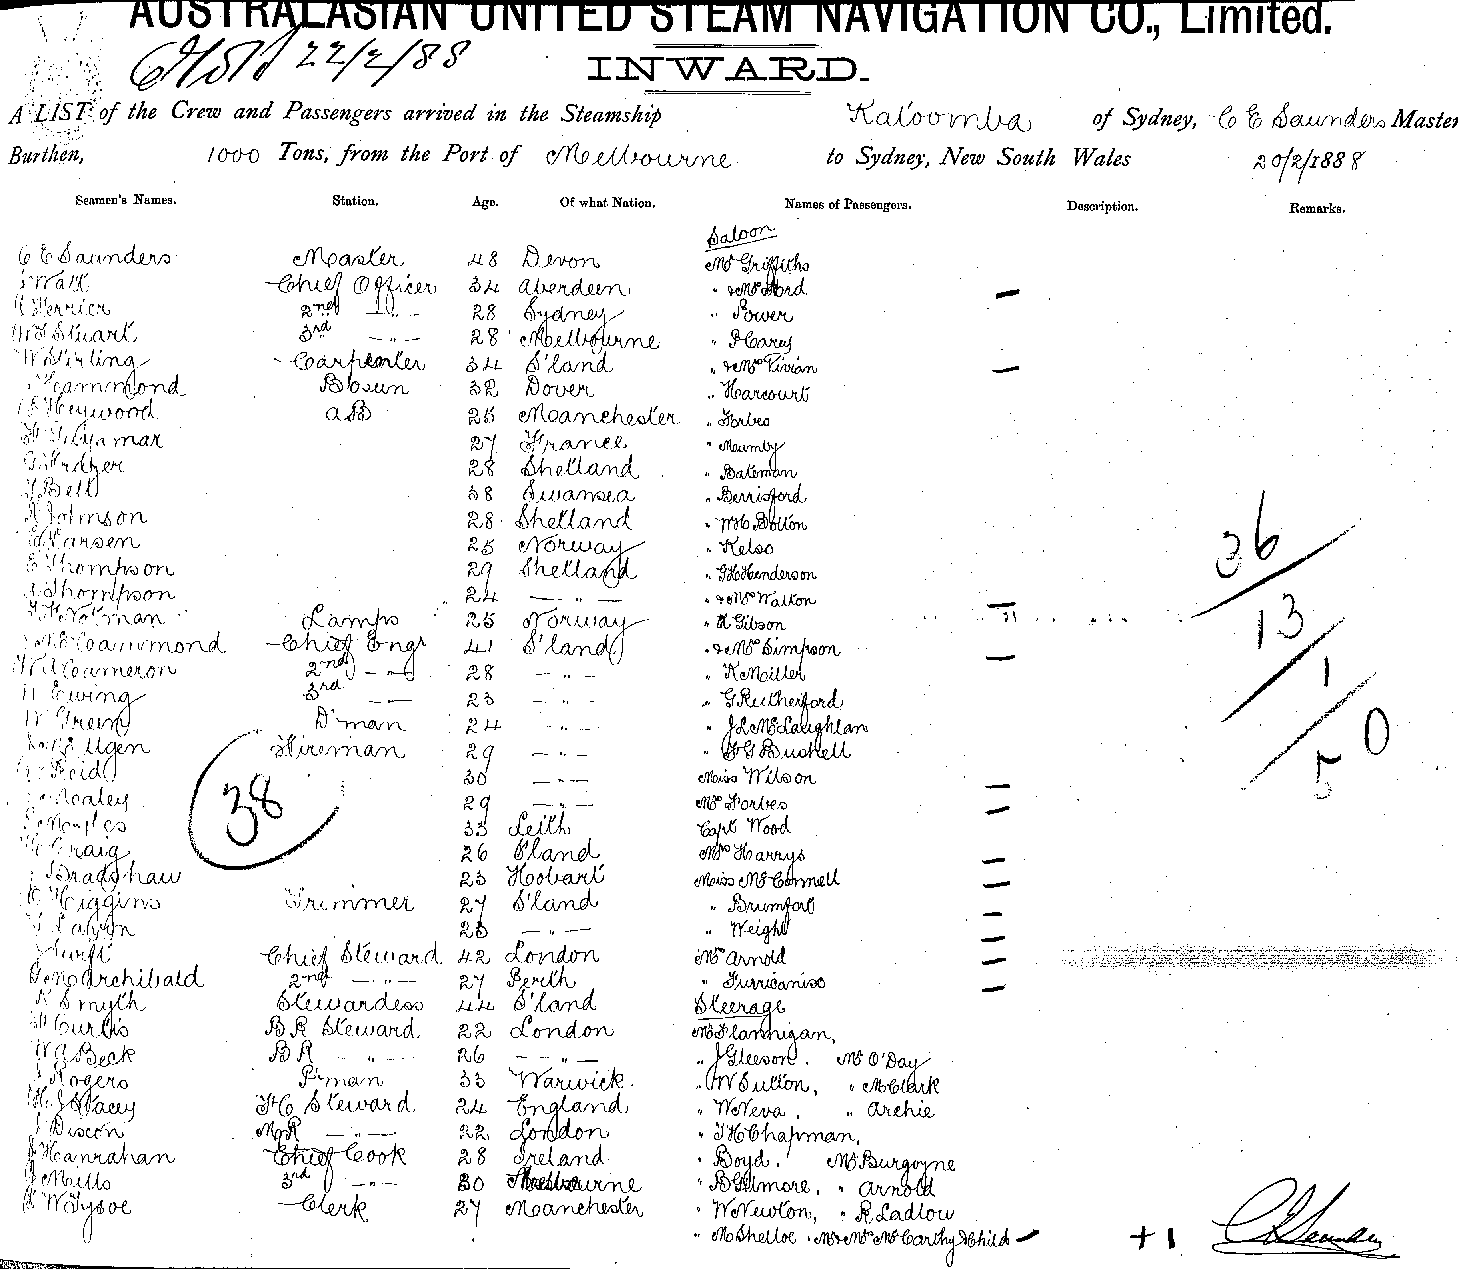 AUSTRALASIAN UNITED STEAM NAVIGATION CO., Limited.
22/2/88
INWARD.
A LIST of the Crew and Passengers arrived in the Steamship Katoomba of Sydney, C E Saunders Master
Burthen, 1000 Tons, from the Port of Melbourne to Sydney, New South Wales 20/2/1888
Seamen's Names. Station. Age. Of what Nation. Names of Passengers. Description. Remarks.
Saloon
C E Saunders Master 48 Devon Mr Griffiths
Watt Chief Officer 34 Aberdeen " & Mrs Ford
Ferrier 2nd -"- 28 Sydney " Power
Stuart 3rd -"- 28 Melbourne " P Carey
W Stirling Carpenter 34 S'land " & Mrs Vivian
Hammond Bosun 32 Dover " Harcourt
Heywood AB 25 Manchester " Forbes
27 France " Mumby
28 Shetland " Bateman
Bell 38 Swansea " Berrisford
Johnson 28 Shetland " W H C Bolton
Larsen 25 Norway " Kelso
Thompson 29 Shetland " G H Henderson
Thompson 24 -"- " & Mrs Walton
Notman Lamps 25 Norway " A Gibson
Hammond Chief Engr 41 S'land " & Mrs Simpson
Cameron 2nd -"- 28 -"- " K Miller
Ewing 3rd -"- 23 -"- " G Rutherford
Green D'man 24 -"- " J L McLaughlan
Ilgen Fireman 29 -"- " F G Bushell
Reid 30 -"- Miss Wilson
29 -"- Mrs Forbes
33 Leith Capt Wood
Craig 26 S'land Mrs Harrys
Bradshaw 23 Hobart Miss McConnell
Higgins Trimmer 27 S'land " Brumfort
23 -"- " Weight
Swift Chief Steward 42 London Mrs Arnold
Archibald 2nd -"- 27 Perth "
K Smyth Stewardess 44 S'land Steerage
Curtis B R Steward 22 London Mr Flannigan,
Beck B R -"- 26 -"- " J Gleeson. Mr O'Day
Rogers P'man 33 Warwick. " W Sutton, " McClark
Stacey F C Steward 24 England " W Neva, " Archie
Discon M R -"- 22 London " T H Chapman,
Hanrahan Chief Cook 28 Ireland " Boyd. Mr Burgoyne
Mills 3rd -"- 30 Melbourne " B Gilmore, " Arnold
W Tysoe Clerk 27 Manchester " W Newton, " R Ladlow
" M Shelloe. Mr & Mrs McCarthy & Child
38
36
13
1
50
+1